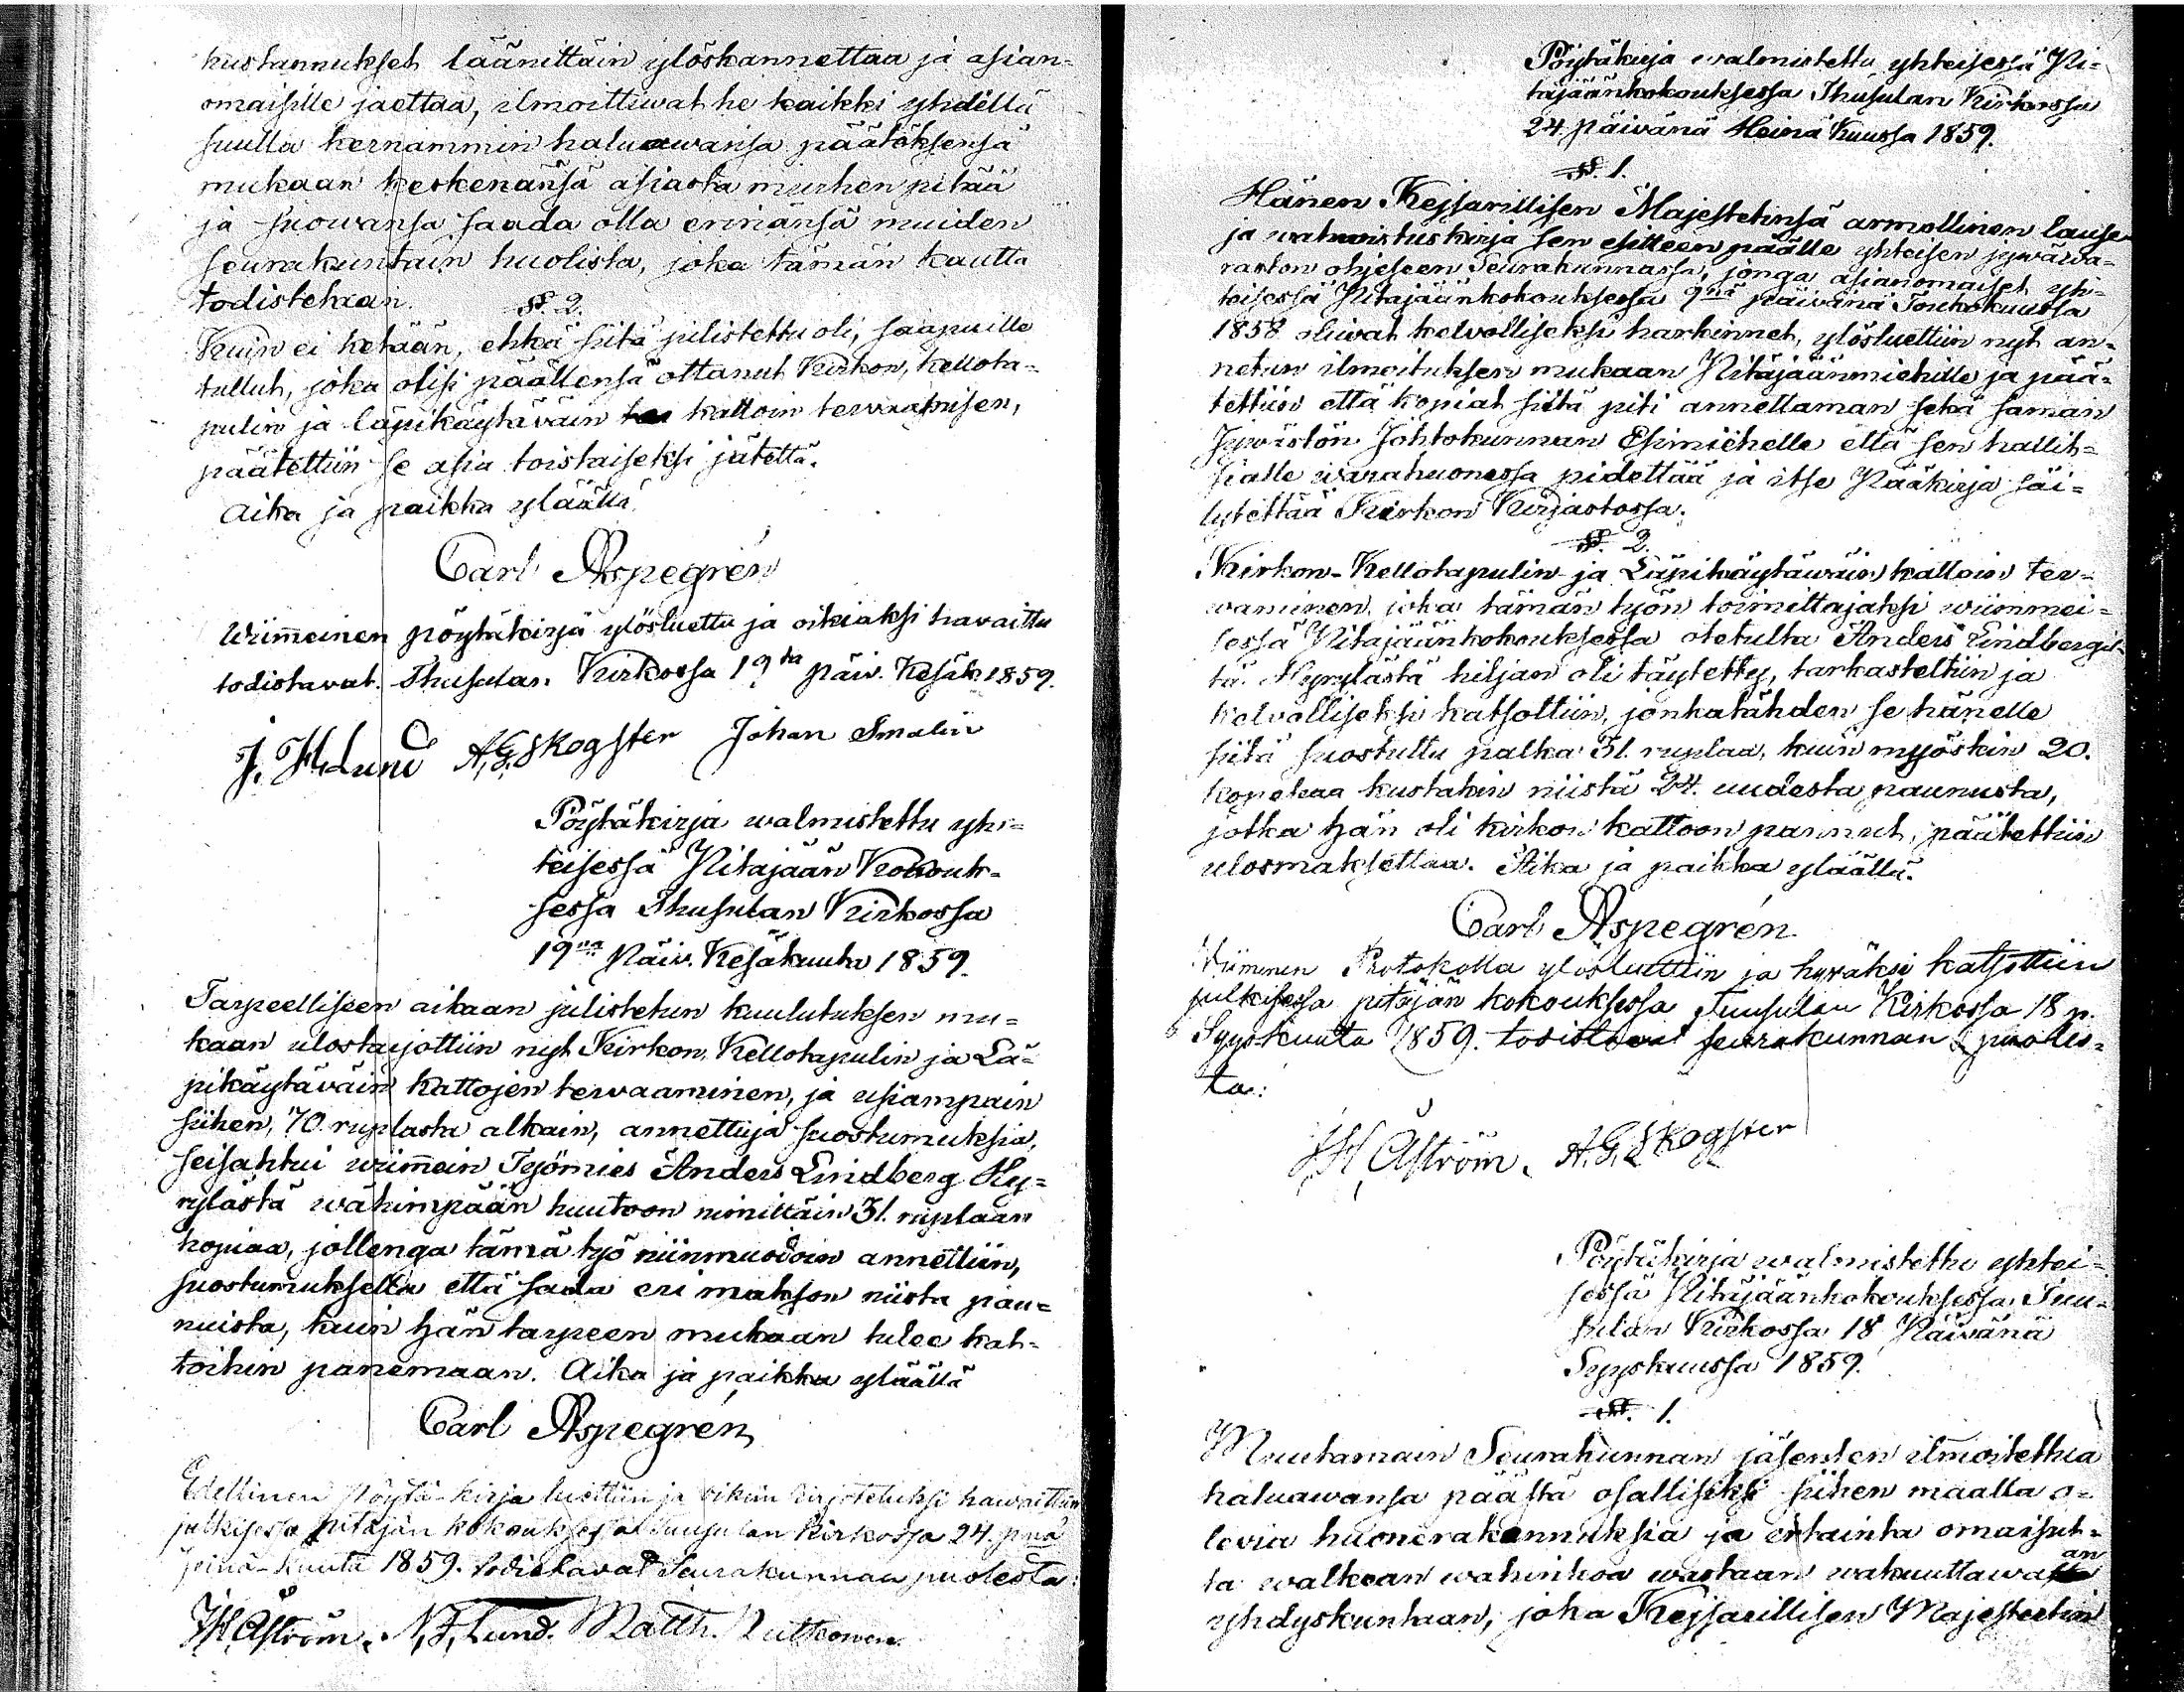 kustannukset läänittäin ylöskannettaa ja asian=
omaisille jaettaa, ilmoittiwat he kaikki yhdellä
suulla kernammin haluawansa päätöksensä
mukaan keskenänsä asiasta murhen pitää
ja suowansa saada olla erinänsä muiden
seurakuntain huolista, joka tämän kautta
todistetaan.
§. 2.
Kuin ei ketään, ehkä siitä julistettu oli, saapuille
tullut, joka olisi päällensä ottanut Kirkon, kellota=
pulin ja läpikäytäväin kattoin tervaamisen,
päätettiin se asia toistaiseksi jätettä.
Aika ja paikka ylläällä
Carl Aspegrén
Wiimeinen pöytäkirja ylösluettu ja oikiaksi havaittu
todistavat. Thusulan Kirkossa 19ta päiv. Kesäk. 1859.
J. H. Lund A. G. Skogster Johan Smalin
Pöytäkirja walmistettu yh=
teisessä Pitäjään Kokouk=
sessa Thusulan Kirkossa
19na Päiv. Kesäkuuta 1859.
Tarpeelliseen aikaan julistetun kuulutuksen mu=
kaan ulostarjottiin nyt Kirkon, Kellotapulin ja Lä=
pikäytäväin kattojen tervaaminen, ja usiampain
siihen, 70 ruplasta alkain, annettuja suostumuksia,
seisahtui wiimein Työmies Anders Lindberg Hy=
rylästä wähimpään huutoon nimittäin 31. ruplaan
hopiaa, jollenga tämä työ niinmuodoin annettiin,
suostumuksella että saada eri makson niistä pau=
nuista, kuin hän tarpeen mukaan tulee kat=
toihin panemaan. Aika ja paikka ylläällä
Carl Aspegrén
Edellinen Pöytä-kirja luettiin ja oikiin kirjoitetuksi hawaittiin
julkisessa pitäjän kokouksessa Tuusulan Kirkossa 24. pnä
Heinä-kuuta 1859. todistavat Seurakunnan puolesta:
J H Åström. N. F. Lund. Matth.
Pöytäkirja walmistettu yhteisessä Pi=
täjäänkokouksessa Thusulan Kirkossa
24. päivänä Heinä Kuussa 1859.
§. 1.
Hänen Kejsarillisen Majestetinsä armollinen lause
ja wahwistuskirja sen esitteen päälle yhteisen jywäwa=
raston ohjeseen Seurakunnassa, jonga asianomaiset yh=
teisessä Pitäjäänkokouksessa 9nä päivänä Toukokuussa
1858 oliwat kelvolliseksi harkinnet, ylösluettiin nyt an=
netun ilmoituksen mukaan Pitäjäänmiehille ja pää=
tettiin että kopiat siitä piti annettaman sekä saman
Jywästön Johtokunnan Esimiehelle että sen hallit=
sialle warahuonessa pidettää ja itse Pääkirja säi=
lytettää Kirkon Kirjastossa.
§. 2.
Kirkon-Kellotapulin- ja Läpikäytäwäin kattoin ter=
waminen, joka tämän työn toimittajaksi wiimmei=
sessä Pitäjäänkokouksessa otetulta Anders Lindbergil=
tä Hyrylästä hiljan oli täytetty, tarkasteltiin ja
kelvolliseksi katsottiin, jonkatähden se hänelle
siitä suostuttu palka 31. ruplaa, kuin myöskin 20.
kopekaa kustakin niistä 24. uudesta paunusta,
jotka hän oli kirkon kattoon pannut, päätettiin
ulosmaksettaa. Aika ja paikka ylläällä.
Carl Aspegrén
Wiiminen Protokolla ylösluettiin ja hyväksi katsottiin
julkisessa pitäjän kokouksessa Tuusulan Kirkossa 18 p.
Syyskuuta 1859. todistavat seurakunnan puoles=
ta:
J H Åström. A. G. Skogster
Pöytäkirja walmistettu yhtei=
sessä Pitäjäänkokouksessa Tuu=
sulan Kirkossa 18 Päivänä
Syyskuussa 1859.
§. 1.
Muutamain Seurakunnan jäsenten ilmoitettua
haluawansa päästä osalliseksi siihen maalla o=
levia huonerakennuksia ja irtainta omaisut=
ta walkean wahinkoa wastaan wakuuttawaan
yhdyskuntaan, joka Kejsarillisen Majestetin